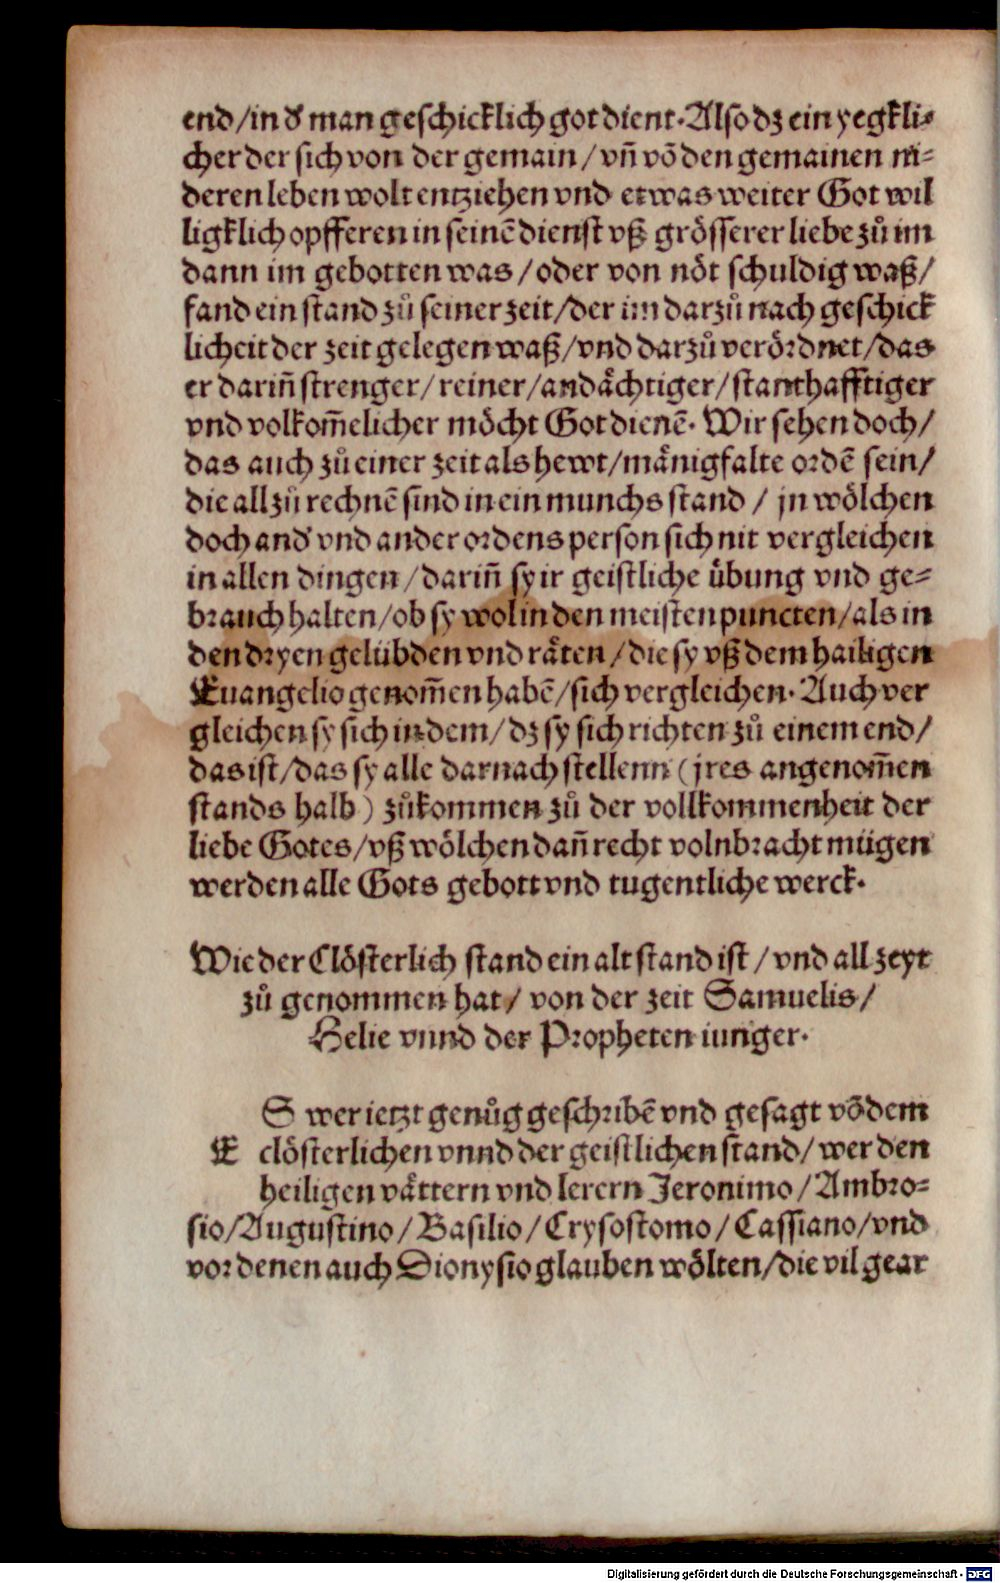 end/in d' man geschicklich got dient. Also dz ein yegkli⸗
cher der sich von der gemain/ vñ võ den gemainen ni⸗
deren leben wolt entziehen vnd etwas weiter Got wil
ligklich opfferen in seinē dienst vß grösserer liebe zů im
dann im gebotten was/ oder von nöt schuldig waß/
fand ein stand zů seiner zeit/ der im darzů nach geschick
licheit der zeit gelegen waß/ vnd darzů verördnet/ das
er dariñ strenger/ reiner/ andächtiger/ stanthafftiger
vnd volkom̄elicher möcht Got dienē. Wir sehen doch/
das auch zů einer zeit als hewt/ mänigfalte ordē sein/
die all zů rechnē sind in ein munchs stand / jn wölchen
doch and' vnd ander ordens person sich nit vergleichen
in allen dingen/ dariñ sy ir geistliche übung vnd ge⸗
brauch halten/ ob sy wol in den meisten puncten/ als in
den dryen gelübden vnd räten/ die sy vß dem hailigen
Euangelio genom̄en habē/ sich vergleichen. Auch ver
gleichen sy sich in dem/ dz sy sich richten zů einem end/
das ist/ das sy alle darnach stellenn (jres angenom̄en
stands halb) zůkommen zů der vollkommenheit der
liebe Gotes/ vß wölchen dañ recht volnbracht mügen
werden alle Gots gebott vnd tugentliche werck.
Wie der Clösterlich stand ein alt stand ist/ vnd all zeyt
zů genommen hat/ von der zeit Samuelis/
Helie vnnd der Propheten iunger.
S wer ietzt genůg geschribē vnd gesagt võ dem
E clösterlichen vnnd der geistlichen stand/ wer den
heiligen vättern vnd lerern Jeronimo/ Ambro⸗
sio/ Augustino/ Basilio/ Crysostomo/ Cassiano/ vnd
vor denen auch Dionysio glauben wölten/ die vil gear
Digitalisierung gefördert durch die Deutsche Forschungsgemeinschaft - DFG